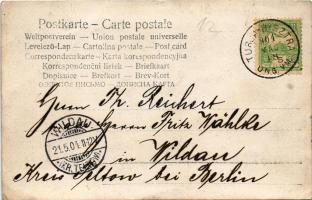 Postkarte - Carte postale
Weltpostverein - Union postale universelle
Levelező-Lap - Cartolina postale - Post card
Correspondenzkarte - Karta korespondencyjna
Korespondenční lístek - Briefkaart
Dopisnice - Brefkort - Brev-Kort
ОТКРЫТОЕ ПИСЬМО - ДОПИСНА КАРТА
12
Herrn Fr. Reichert
Herrn Fritz Wählke
in Wildau
Kreis Teltow bei Berlin
WILDAU
21.5.01